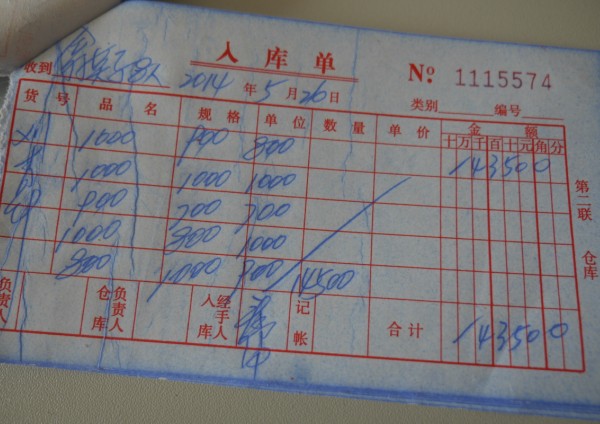 入库单
№ 1115574
收到 2014年5月26日 类别 编号
货号 品名 规格 单位 数量 单价 金额
十万千百十元角分
1000 900 800 143500
1000 1000 1000
900 700 700
1000 800 1000
800 1000 700 14500
负责人 仓库 负责人 入库 经手人 记帐 合计 143500
第二联 仓库